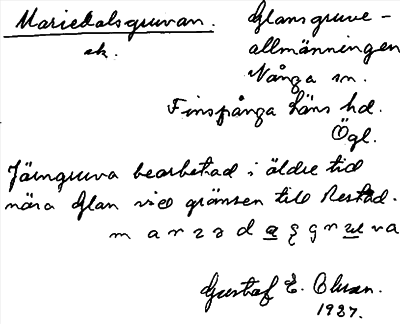 Mariedalsgruvan.
sk.
Glansgruve-
allmänningen
Vånga sn.
Finspånga läns hd.
Ögl.
Järngruva bearbetad i äldre tid
nära Glan vid gränsen till Restad.
Gustaf E. Olsson.
1927.